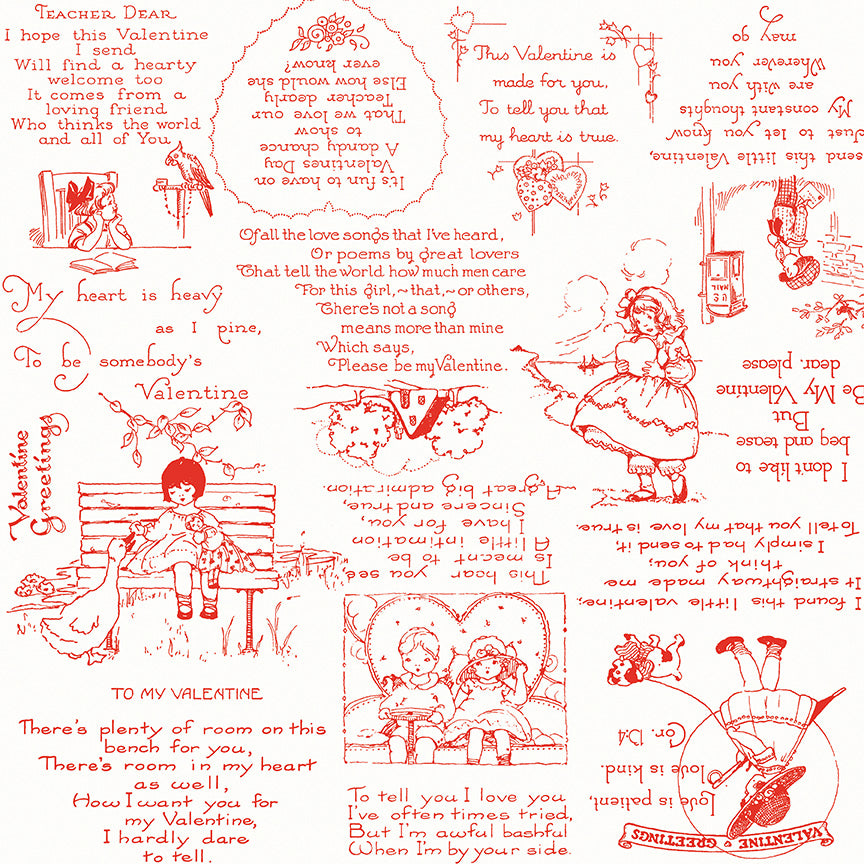 TEACHER DEAR
I hope this Valentine
I send
Will find a hearty
welcome too
It comes from a
loving friend
Who thinks the world
and all of You
It's fun to have on
Valentines Day
A dandy chance
to show
That we love our
Teacher dearly
Else how would she
ever know?
This Valentine is
made for you,
To tell you that
my heart is true.
send this little Valentine,
Just to let you know
My constant thoughts
are with you
Wherever you
may go
U S
MAIL
Of all the love songs that I've heard,
Or poems by great lovers
That tell the world how much men care
For this girl, ~ that, ~ or others,
There's not a song
means more than mine
Which says,
Please be my Valentine.
My heart is heavy
as I pine,
To be somebody's
Valentine
Valentine
Greetings
I don't like to
beg and tease
But
Be My Valentine
dear, please
This hear you see
Is meant to be
A little intimation
I have for you,
Sincere and true,
A great big admiration.
I found this little valentine,
It straightway made me
think of you;
I simply had to send it,
To tell you that my love is true.
TO MY VALENTINE
There's plenty of room on this
bench for you,
There's room in my heart
as well,
How I want you for
my Valentine,
I hardly dare
to tell.
To tell you I love you
I've often times tried,
But I'm awful bashful
When I'm by your side.
VALENTINE GREETINGS
Love is patient,
love is kind.
Cor. 13:4